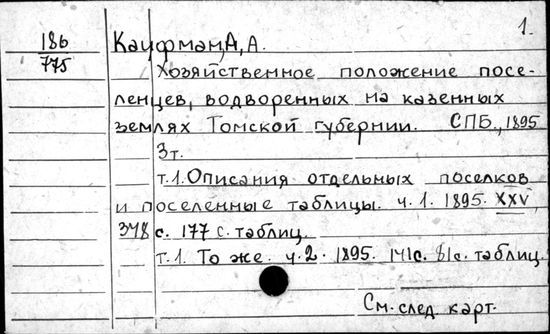 1.
186
775
Кауфман, А, А.
Хозяйственное положение посе-
ленцев, водворенных на казенных
землях Томской губернии. СПБ., 1895
3т.
т.1. Описания отдельных поселков
и поселенные таблицы. ч.1. 1895. XXV,
378 с. 177 с. таблиц.
т.1. То же. ч.2. 1895. 141с. 81с. таблиц.
См. след. карт.